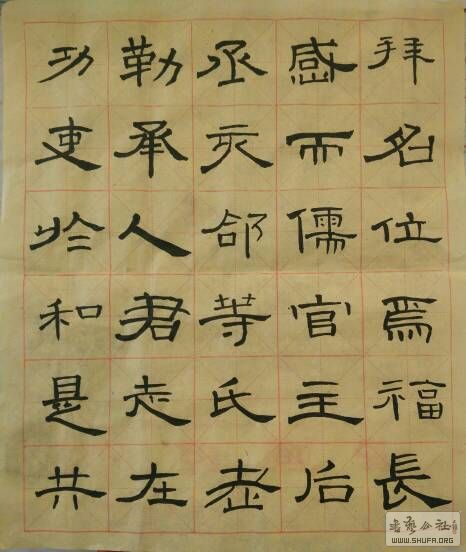 拜名位焉福長
感而儒官主后
丞亥郃等氏老
勒承人君走在
功吏於和是共
書藝公社
WWW.SHUFA.ORG